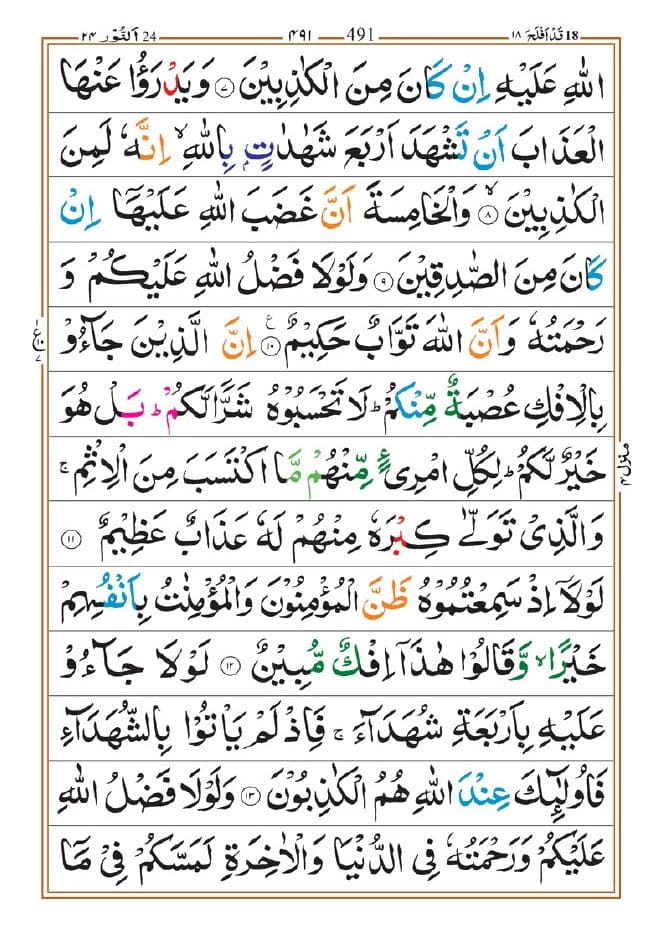 18 قَدْ اَفْلَحَ ١٨ — 491 — ٤٩١ — 24 اَلنُّوْر ٢٤
اللّٰهِ عَلَيْهِ اِنْ كَانَ مِنَ الْكٰذِبِيْنَ ۝٧ وَيَدْرَؤُا عَنْهَا
الْعَذَابَ اَنْ تَشْهَدَ اَرْبَعَ شَهٰدٰتٍۭ بِاللّٰهِ ۙ اِنَّهٗ لَمِنَ
الْكٰذِبِيْنَ ۝٨ۙ وَالْخَامِسَةَ اَنَّ غَضَبَ اللّٰهِ عَلَيْهَاۤ اِنْ
كَانَ مِنَ الصّٰدِقِيْنَ ۝٩ وَلَوْلَا فَضْلُ اللّٰهِ عَلَيْكُمْ وَ
رَحْمَتُهٗ وَاَنَّ اللّٰهَ تَوَّابٌ حَكِيْمٌ ۝١٠ۧ اِنَّ الَّذِيْنَ جَآءُوْ
بِالْاِفْكِ عُصْبَةٌ مِّنْكُمْ ؕ لَا تَحْسَبُوْهُ شَرًّا لَّكُمْ ؕ بَلْ هُوَ
خَيْرٌ لَّكُمْ ؕ لِكُلِّ امْرِئٍ مِّنْهُمْ مَّا اكْتَسَبَ مِنَ الْاِثْمِ ۚ
وَالَّذِيْ تَوَلّٰى كِبْرَهٗ مِنْهُمْ لَهٗ عَذَابٌ عَظِيْمٌ ۝١١
لَوْلَاۤ اِذْ سَمِعْتُمُوْهُ ظَنَّ الْمُؤْمِنُوْنَ وَالْمُؤْمِنٰتُ بِاَنْفُسِهِمْ
خَيْرًا ۙ وَّقَالُوْا هٰذَاۤ اِفْكٌ مُّبِيْنٌ ۝١٢ لَوْلَا جَآءُوْ
عَلَيْهِ بِاَرْبَعَةِ شُهَدَآءَ ۚ فَاِذْ لَمْ يَاْتُوْا بِالشُّهَدَآءِ
فَاُولٰٓئِكَ عِنْدَ اللّٰهِ هُمُ الْكٰذِبُوْنَ ۝١٣ وَلَوْلَا فَضْلُ اللّٰهِ
عَلَيْكُمْ وَرَحْمَتُهٗ فِي الدُّنْيَا وَالْاٰخِرَةِ لَمَسَّكُمْ فِيْ مَاۤ
منزل ٤